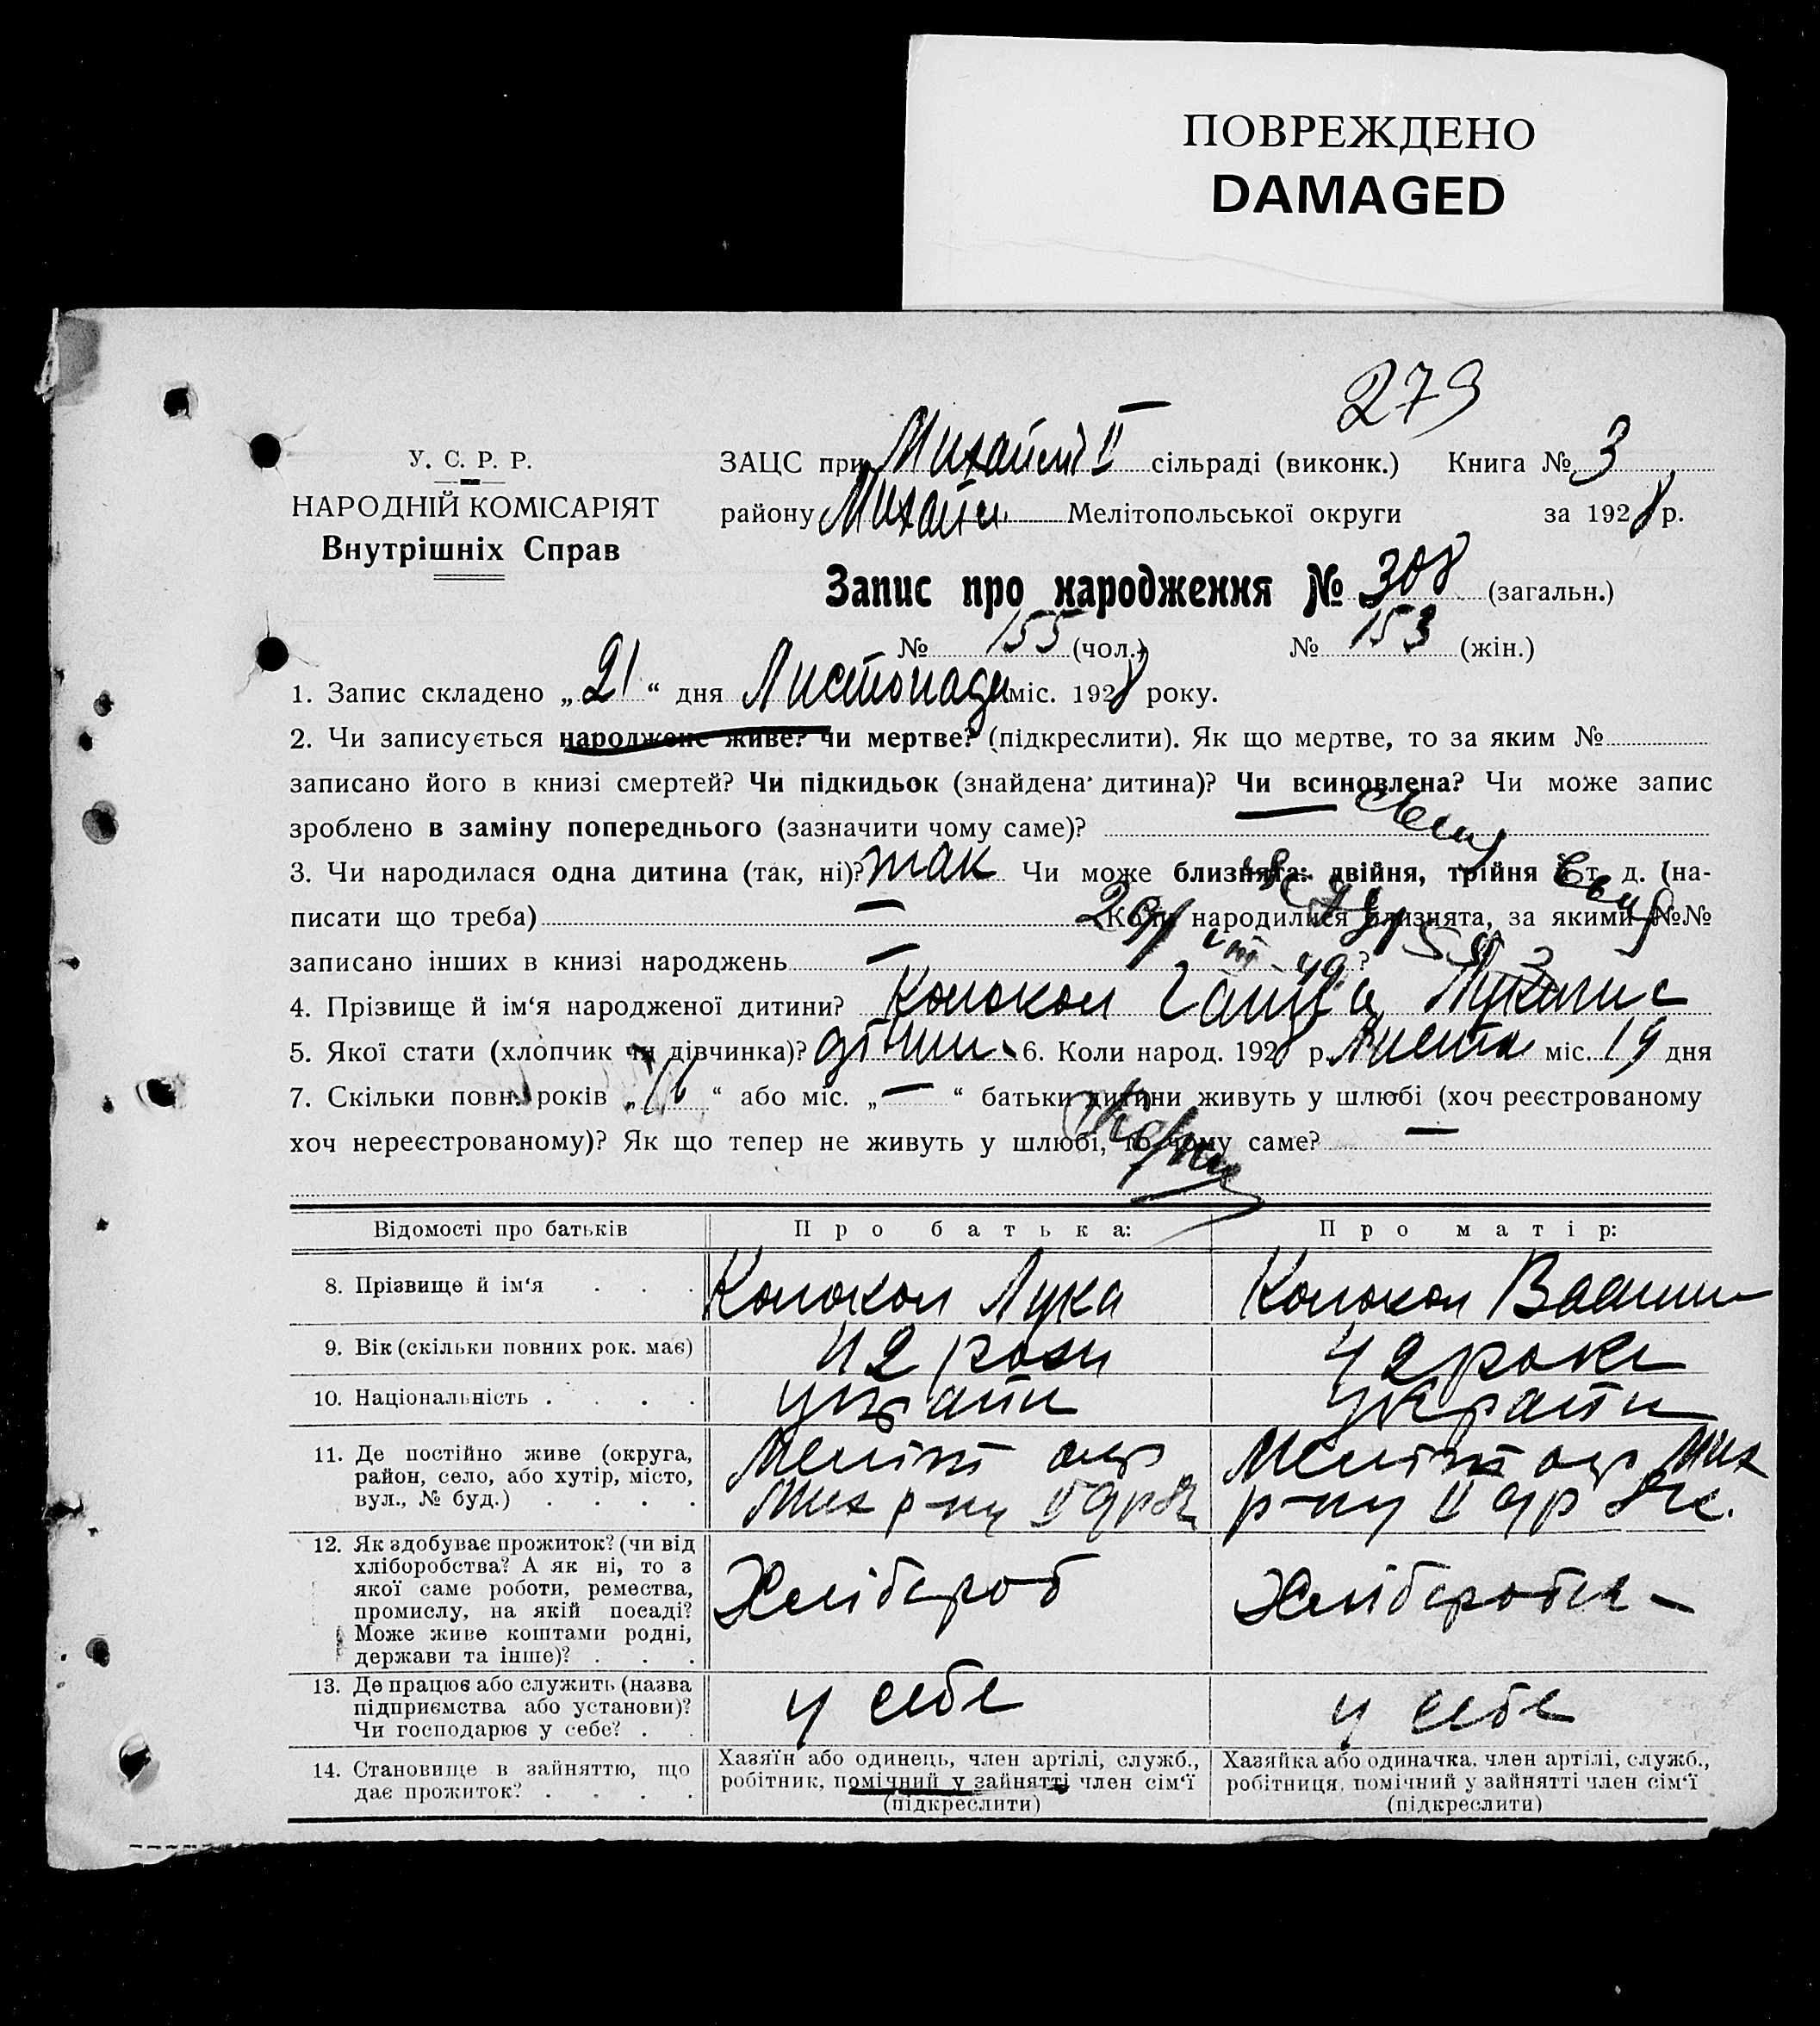 ПОВРЕЖДЕНО
DAMAGED
279
У. С. Р. Р.
НАРОДНІЙ КОМІСАРІЯТ
Внутрішніх Справ
ЗАЦС при Михайлів ІІ сільраді (виконк.) Книга № 3
району Михайл Мелітопольської округи за 1928 р.
Запис про народження № 308 (загальн.)
№ 155 (чол.) № 153 (жін.)
1. Запис складено „21“ дня Листопада міс. 1928 року.
2. Чи записується народжене живе? чи мертве? (підкреслити). Як що мертве, то за яким №
записано його в книзі смертей? Чи підкидьок (знайдена дитина)? Чи всиновлена? Чи може запис
зроблено в заміну попереднього (зазначити чому саме)?
3. Чи народилася одна дитина (так, ні)? так Чи може близнята: двійня, трійня й т. д. (на-
писати що треба) — Коли народилися близнята, за якими №№
записано інших в книзі народжень — ?
4. Прізвище й ім‘я народженої дитини? Колокол
5. Якої стати (хлопчик чи дівчинка)? дівчин 6. Коли народ. 1928 р. Листоп міс. 19 дня
7. Скільки повн. років „16“ або міс. „—“ батьки дитини живуть у шлюбі (хоч реєстрованому
хоч нереєстрованому)? Як що тепер не живуть у шлюбі, то чому саме? —
Відомості про батьків Про батька: Про матір:
8. Прізвище й ім‘я Колокол Лука Колокол
9. Вік (скільки повних рок. має) 42 роки 42 роки
10. Національність україн україн
11. Де постійно живе (округа, район, село, або хутір, місто, вул., № буд.) Меліт окр Мих р-ну ІІ Меліт окр Мих р-ну ІІ
12. Як здобуває прожиток? (чи від хліборобства? А як ні, то з якої саме роботи, ремества, промислу, на якій посаді? Може живе коштами родні, держави та інше)? Хлібороб Хлібороб
13. Де працює або служить (назва підприємства або установи)? Чи господарює у себе? у себе у себе
14. Становище в зайняттю, що дає прожиток? Хазяїн або одинець, член артілі, служб., робітник, помічний у зайнятті член сім‘ї (підкреслити) Хазяйка або одиначка, член артілі, служб., робітниця, помічний у зайнятті член сім‘ї (підкреслити)